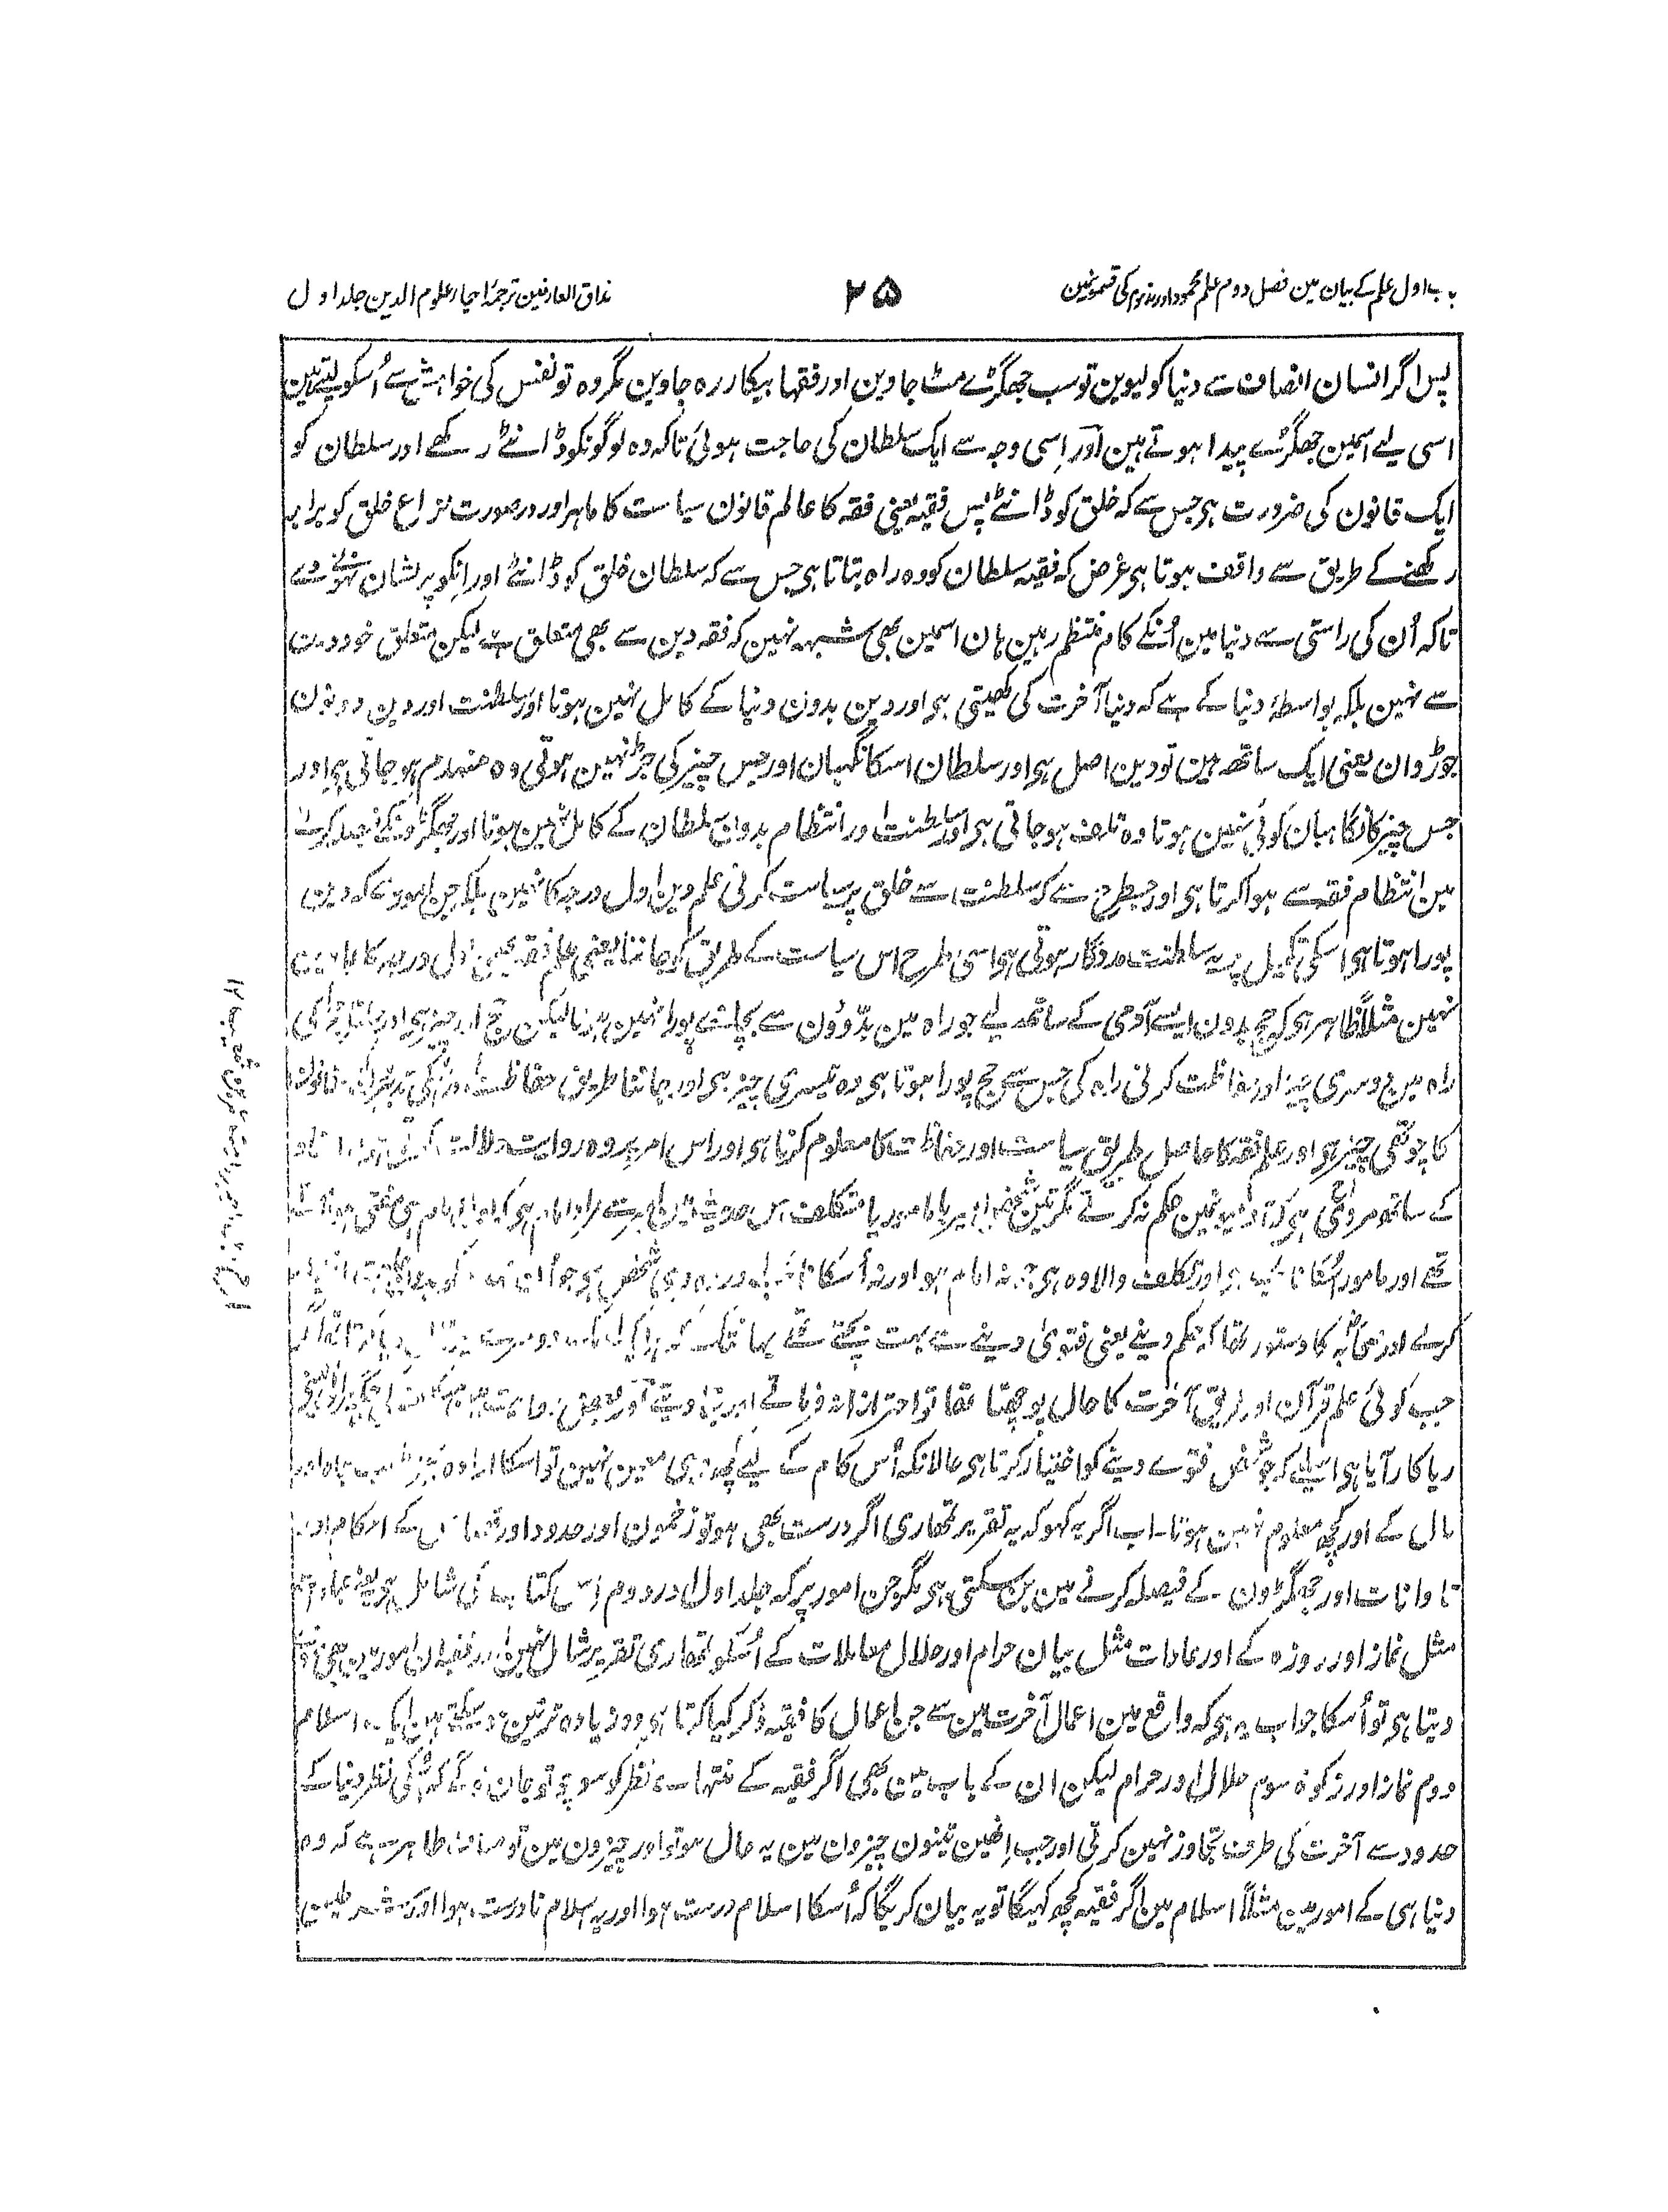 باب اول علم کے بیان مین فصل دوم علم محمود اور مذموم کی قسمونمین
۲۵
مذاق العارفین ترجمۂ احیاء علوم الدین جلد اول
پس اگر انسان انصاف سے دنیا کو لیوین تو سب جھگڑے مٹ جاوین اور فقہا بیکار رہ جاوین مگر وہ تو نفس کی خواہش سے اُسکو لیتے ہین
اسی لیے اسمین جھگڑے پیدا ہوتے ہین اور اِسی وجہ سے ایک سلطان کی حاجت ہوئی تاکہ وہ لوگونکو ڈانٹے رکھے اور سلطان کو
ایک قانون کی ضرورت ہی جس سے کہ خلق کو ڈانٹے پس فقیہ یعنی فقہ کا عالم قانون سیاست کا ماہر اور درصورت نزاع خلق کو برابر
رکھنے کے طریق سے واقف ہوتا ہی غرض کہ فقیہ سلطان کو وہ راہ بتاتا ہی جس سے کہ سلطان خلق کو ڈانٹے اور انکو پریشان نہونے دے
تاکہ اُن کی راستی سے دنیا مین اُنکے کام منتظم رہین ہان اسمین بھی شبہہ نہین کہ فقہ دین سے بھی متعلق ہے لیکن متعلق خود دین
سے نہین بلکہ بواسطۂ دنیا کے ہے کہ دنیا آخرت کی کھیتی ہی اور دین بدون دنیا کے کامل نہین ہوتا اور سلطنت اور دین دونون
جوڑوان یعنی ایک ساتھ ہین تو دین اصل ہی اور سلطان اسکا نگہبان اور جس چیز کی جڑ نہین ہوتی وہ منہدم ہو جاتی ہی اور
جس چیز کا نگاہبان کوئی نہین ہوتا وہ تلف ہو جاتی ہی اور سلطنت اور انتظام بدون سلطان کے کامل نہین ہوتا اور جھگڑونکے فیصلہ کرنے
مین انتظام فقہ سے ہوا کرتا ہی اور جسطرح سے کہ سلطنت سے خلق پر سیاست کرنی علم دین اول درجہ کا نہین بلکہ جن امور سے کہ دین
پورا ہوتا ہی اسکی تکمیل پر یہ سلطنت مددگار ہوتی ہی اسی طرح اس سیاست کے طریق کو جاننا یعنی علم فقہ بھی اول درجہ کا علم دین
نہین مثلاً ظاہر ہی کہ حج بدون ایسے آدمی کے ساتھ لیے جو راہ مین بدّوؤن سے بچائے پورا نہین ہوتا لیکن حج اور چیز ہی اور چلنا حج کی
راہ مین دوسری چیز اور حفاظت کرنی راہ کی جس سے حج پورا ہوتا ہی وہ تیسری چیز ہی اور جاننا طریق حفاظت اور اسکی تدبیر اور قانون
کا چوتھی چیز ہی اور علم فقہ کا حاصل طریق سیاست اور حفاظت کا معلوم کرنا ہی اور اس امر پر وہ روایت دلالت کرتی ہی
کے ساتھ مروی ہی کہ آدمیونمین حکم نہ کرتے مگر تین شخص امیر یا مامور یا متکلف اس حدیث مین امیر سے مراد امام ہی کہ امام ہی مفتی ہوتے
تھے اور مامور اسکا نائب ہی اور تکلف والا وہ ہی جو نہ امام ہو اور نہ اُسکا نائب اور وہ وہی شخص ہی جو
کرے اور صحابہ کا دستور تھا کہ حکم دینے یعنی فتوی دینے سے بہت بچتے تھے یہانتک کہ ہر ایک دوسرے پر
جب کوئی علم قرآن اور طریق آخرت کا حال پوچھتا تھا تو احتراز نہ فرماتے اور بتا دیتے اور بعض
ریاکار آیا ہی اسلیے کہ جو شخص فتوے دینے کو اختیار کرتا ہی حالانکہ اُس کام کے لیے کچھ وہی معین نہین تو اسکا ارادہ بجز طلب جاہ اور
مال کے اور کچھ معلوم نہین ہوتا۔ اب اگر یہ کہو کہ یہ تقریر تمھاری اگر درست بھی ہو تو زخمون اور حدود اور قصاص کے احکام اور
تاوانات اور جھگڑون کے فیصلہ کرنے مین بن سکتی ہی مگر جن امور پر کہ جلد اول اور دوم اِس کتاب کی شامل ہی یعنی عبادات
مثل نماز اور روزہ کے اور عادات مثل بیان حرام اور حلال معاملات کے اُنکو تمھاری تقریر شامل نہین اور فقیہ ان امور مین بھی فتوی
دیتا ہی تو اُسکا جواب یہ ہی کہ واقع مین اعمال آخرت مین سے جن اعمال کا فقیہ ذکر کیا کرتا ہی وہ زیادہ تر تین ہو سکتے ہین ایک اسلام
دوم نماز اور زکوۃ سوم حلال اور حرام لیکن ان کے باب مین بھی اگر فقیہ کے منتہاے نظر کو سوچو تو جان لوگے کہ اُسکی نظر دنیا کے
حدود سے آخرت کی طرف تجاوز نہین کرتی اور جب اِنھین تینون چیزون مین یہ حال ہو تو اور چیزون مین تو صاف ظاہر ہے کہ وہ
دنیا ہی کے امور ہین مثلاً اسلام مین اگر فقیہ کچھ کہیگا تو یہ بیان کریگا کہ اُسکا اسلام درست ہوا اور یہ اسلام نادرست ہوا اور شرطین